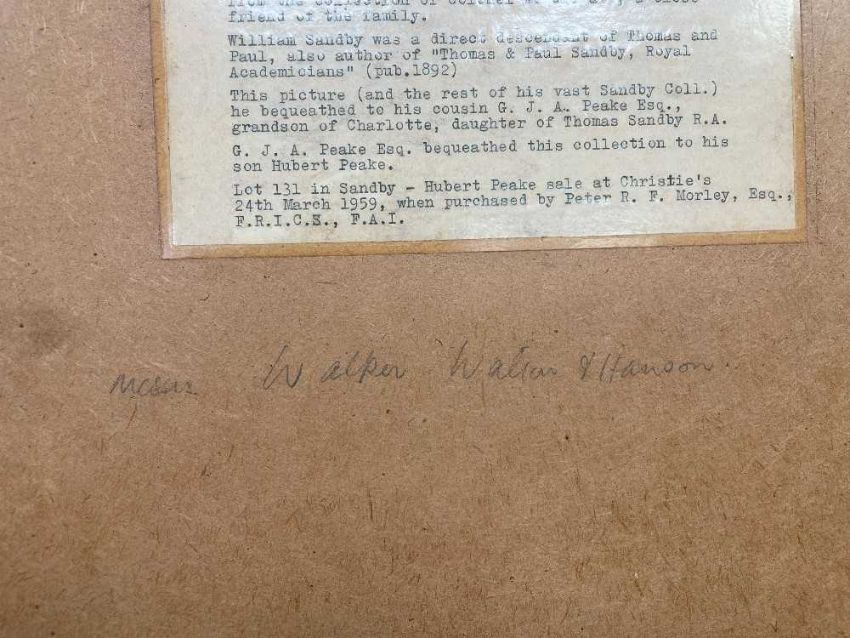 from the collection of
friend of the family.
William Sandby was a direct descendant of Thomas and
Paul, also author of "Thomas & Paul Sandby, Royal
Academicians" (pub.1892)
This picture (and the rest of his vast Sandby Coll.)
he bequeathed to his cousin G. J. A. Peake Esq.,
grandson of Charlotte, daughter of Thomas Sandby R.A.
G. J. A. Peake Esq. bequeathed this collection to his
son Hubert Peake.
Lot 131 in Sandby - Hubert Peake sale at Christie's
24th March 1959, when purchased by Peter R. F. Morley, Esq.,
F.R.I.C.S., F.A.I.
Messrs Walker Walton & Hanson.